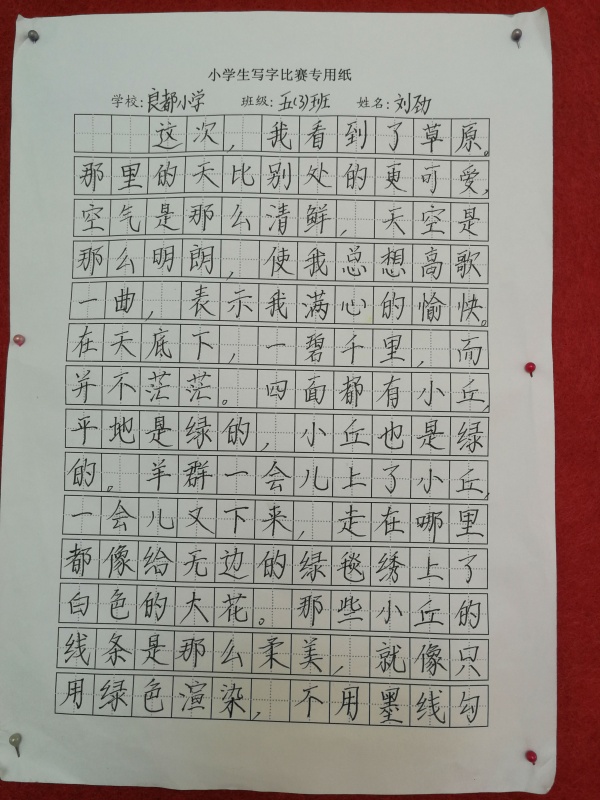 小学生写字比赛专用纸
学校:良都小学 班级:五(3)班 姓名:刘劲
这次,我看到了草原。
那里的天比别处的更可爱,
空气是那么清鲜,天空是
那么明朗,使我总想高歌
一曲,表示我满心的愉快。
在天底下,一碧千里,而
并不茫茫。四面都有小丘,
平地是绿的,小丘也是绿
的。羊群一会儿上了小丘,
一会儿又下来,走在哪里
都像给无边的绿毯绣上了
白色的大花。那些小丘的
线条是那么柔美,就像只
用绿色渲染,不用墨线勾